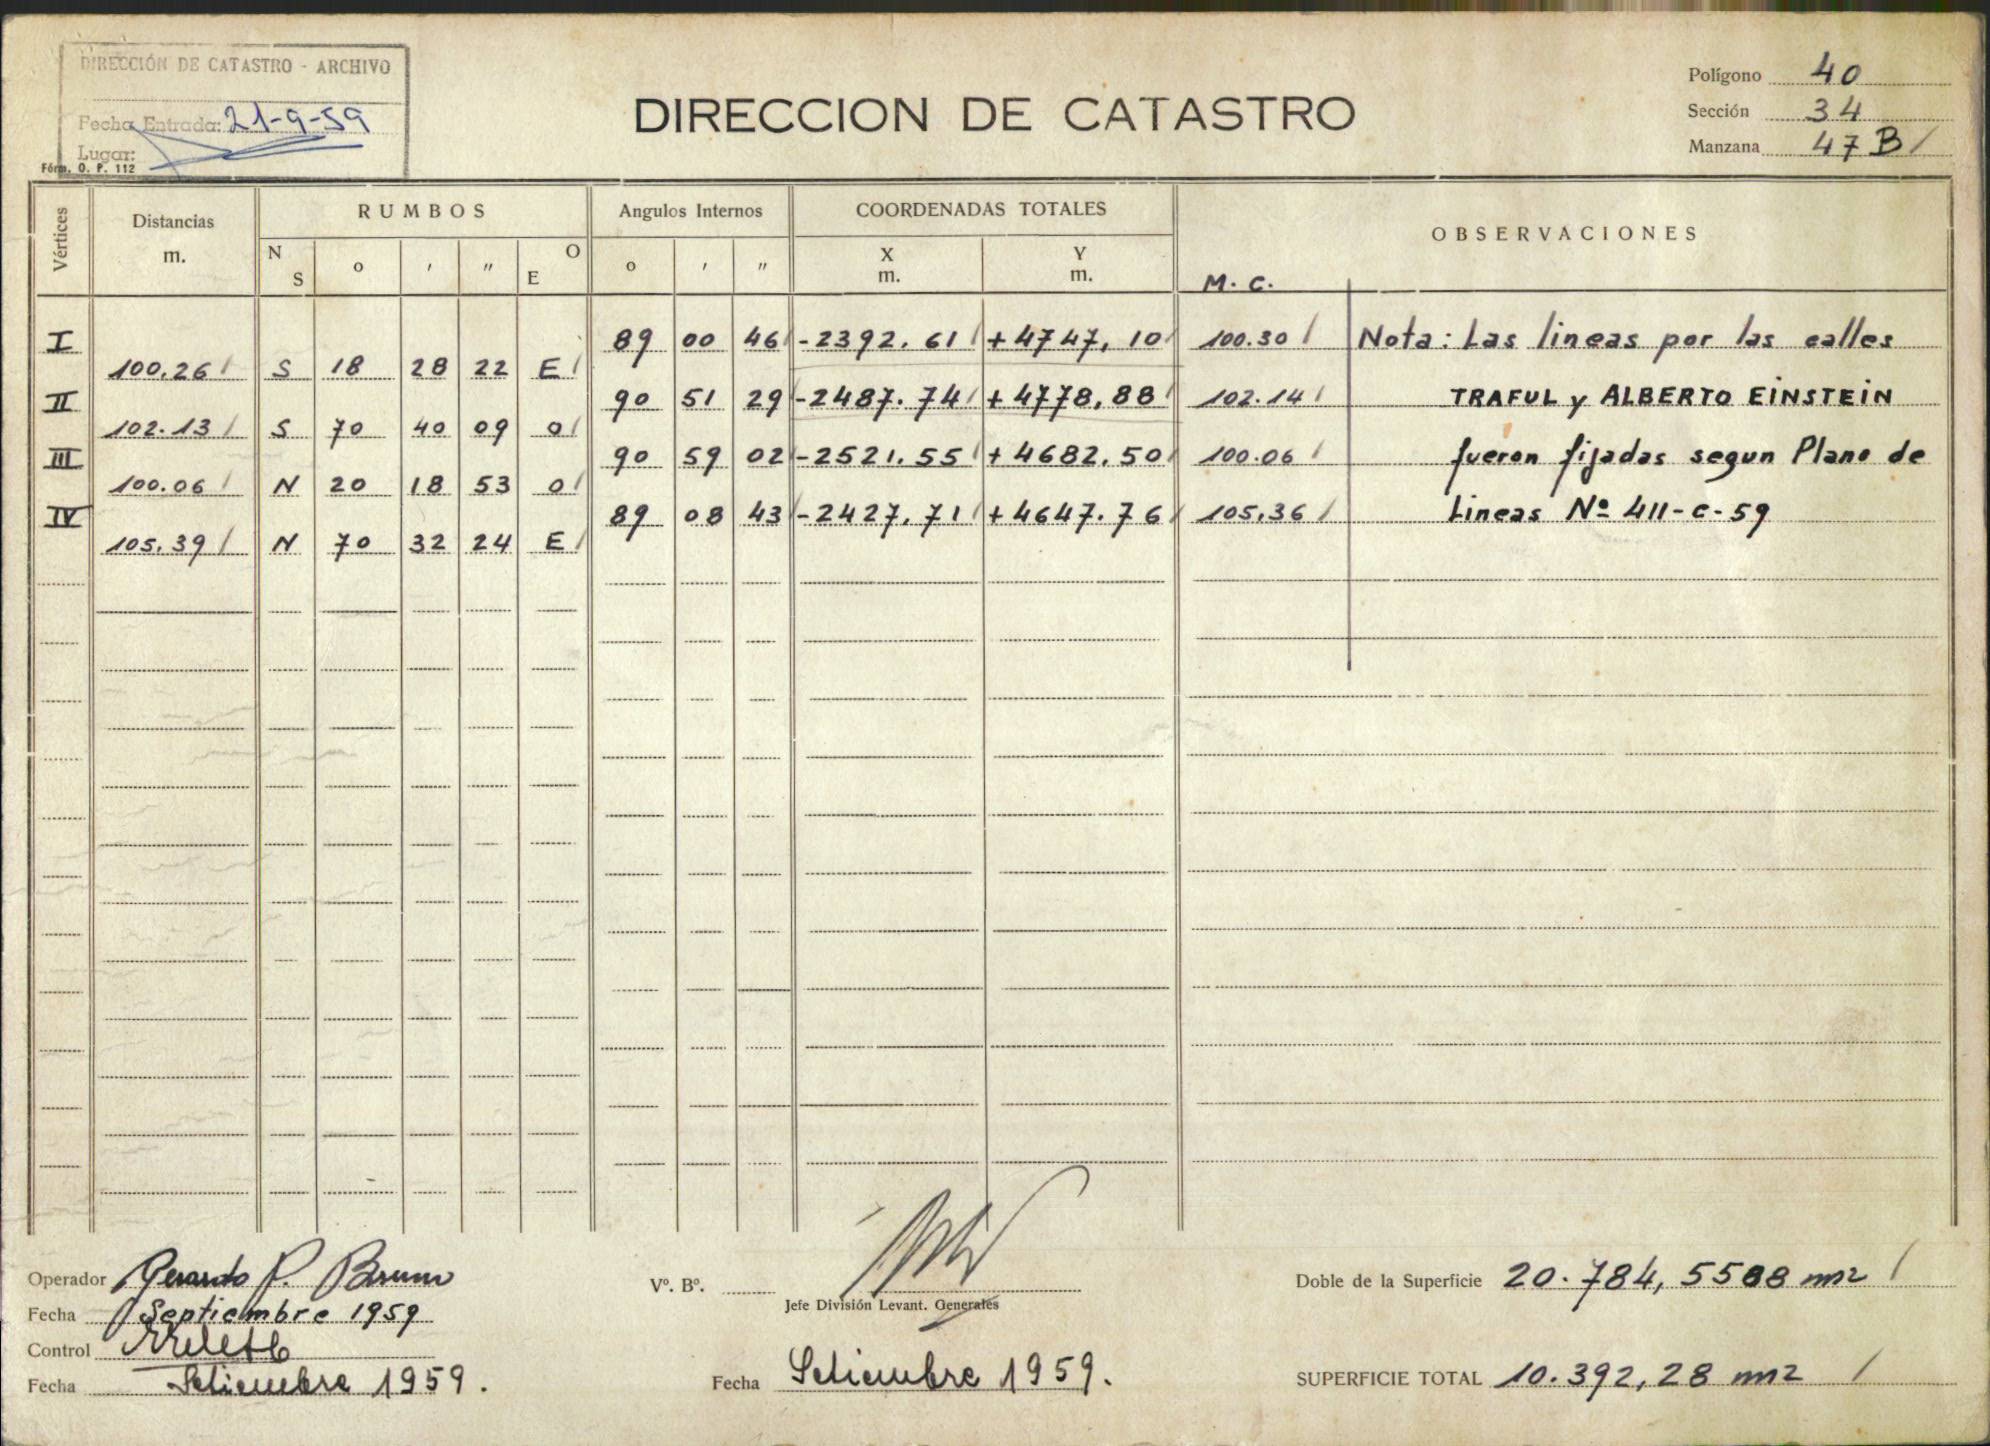 DIRECCIÓN DE CATASTRO - ARCHIVO
Fecha Entrada: 21-9-59
Lugar:
Fórm. O. P. 112
DIRECCION DE CATASTRO
Polígono 40
Sección 34
Manzana 47 B /
Vértices Distancias m. RUMBOS Angulos Internos COORDENADAS TOTALES OBSERVACIONES
N S o ' " O E o ' " X m. Y m. M. C.
I 89 00 46 / -2392.61 / +4747,10 / 100.30 / Nota: Las lineas por las calles
100.26 / S 18 28 22 E /
II 90 51 29 / -2487.74 / +4778,88 / 102.14 / TRAFUL y ALBERTO EINSTEIN
102.13 / S 70 40 09 O /
III 90 59 02 / -2521.55 / +4682.50 / 100.06 / fueron fijadas segun Plano de
100.06 / N 20 18 53 O /
IV 89 08 43 / -2427.71 / +4647.76 / 105,36 / Lineas Nº 411-C-59
105.39 / N 70 32 24 E /
Operador Gerardo P. Bruno
Fecha Septiembre 1959
Control
Fecha Setiembre 1959.
Vº. Bº.
Jefe División Levant. Generales
Fecha Setiembre 1959.
Doble de la Superficie 20.784,5588 m2 /
SUPERFICIE TOTAL 10.392,28 m2 /